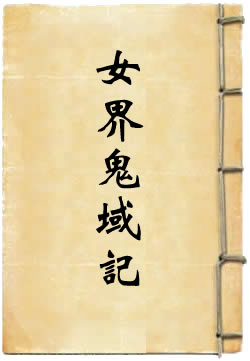 女界鬼域記